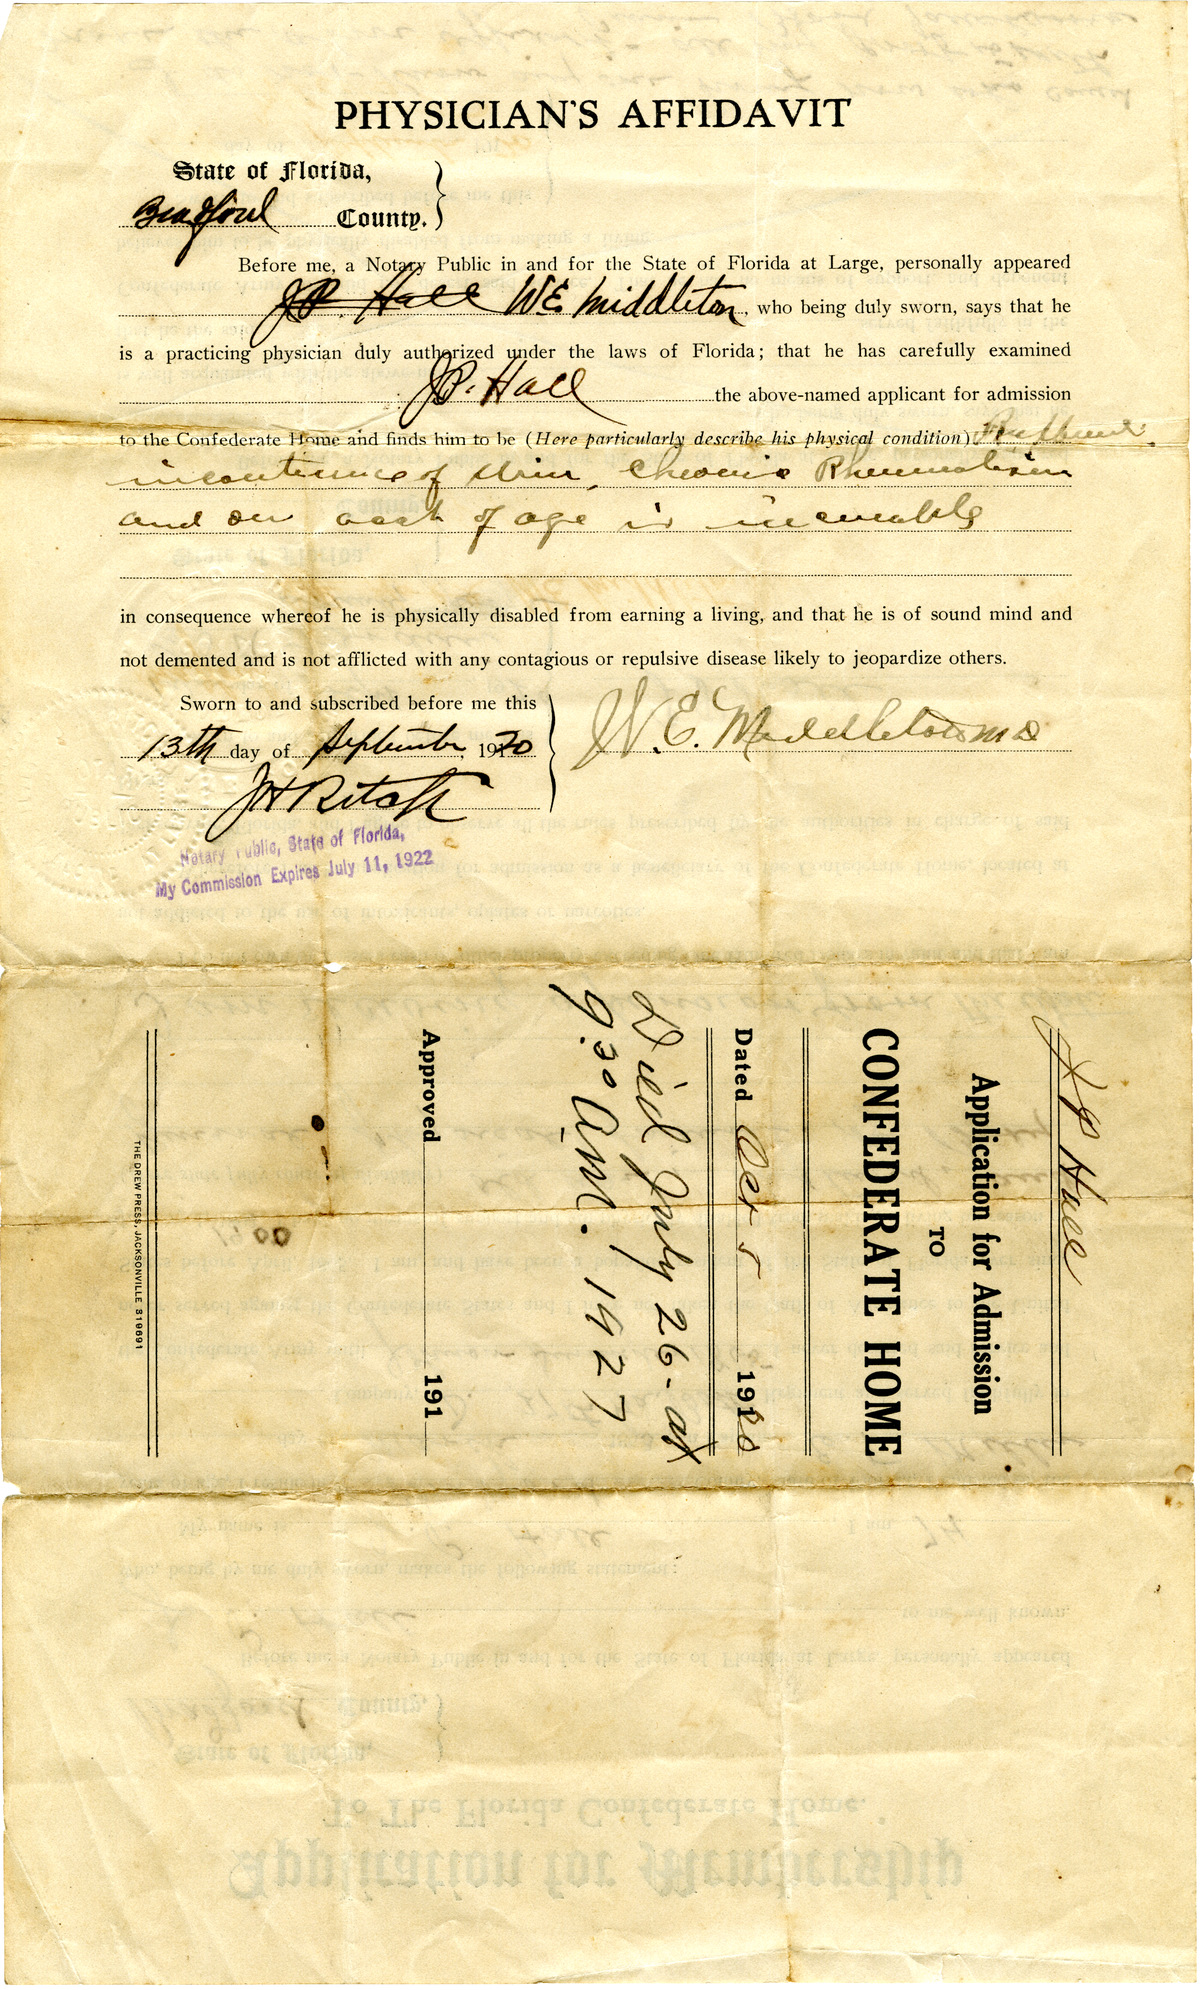 PHYSICIAN'S AFFIDAVIT
State of Florida,
Bradford County.
Before me, a Notary Public in and for the State of Florida at Large, personally appeared
J.P. Hall W.E. Middleton, who being duly sworn, says that he
is a practicing physician duly authorized under the laws of Florida; that he has carefully examined
J.P. Hall the above-named applicant for admission
to the Confederate Home and finds him to be (Here particularly describe his physical condition)
incontinence of Urin, Chronic Rheumatism
and on acct of age is incurable
in consequence whereof he is physically disabled from earning a living, and that he is of sound mind and
not demented and is not afflicted with any contagious or repulsive disease likely to jeopardize others.
Sworn to and subscribed before me this
13th day of September, 1920
W.E. Middleton MD
JH Ritch
Notary Public, State of Florida,
My Commission Expires July 11, 1922
J P Hall
Application for Admission
TO
CONFEDERATE HOME
Dated Oct 5 1920
Died July 26 - at
9.30 A.M. 1927
Approved 191
THE DREW PRESS, JACKSONVILLE